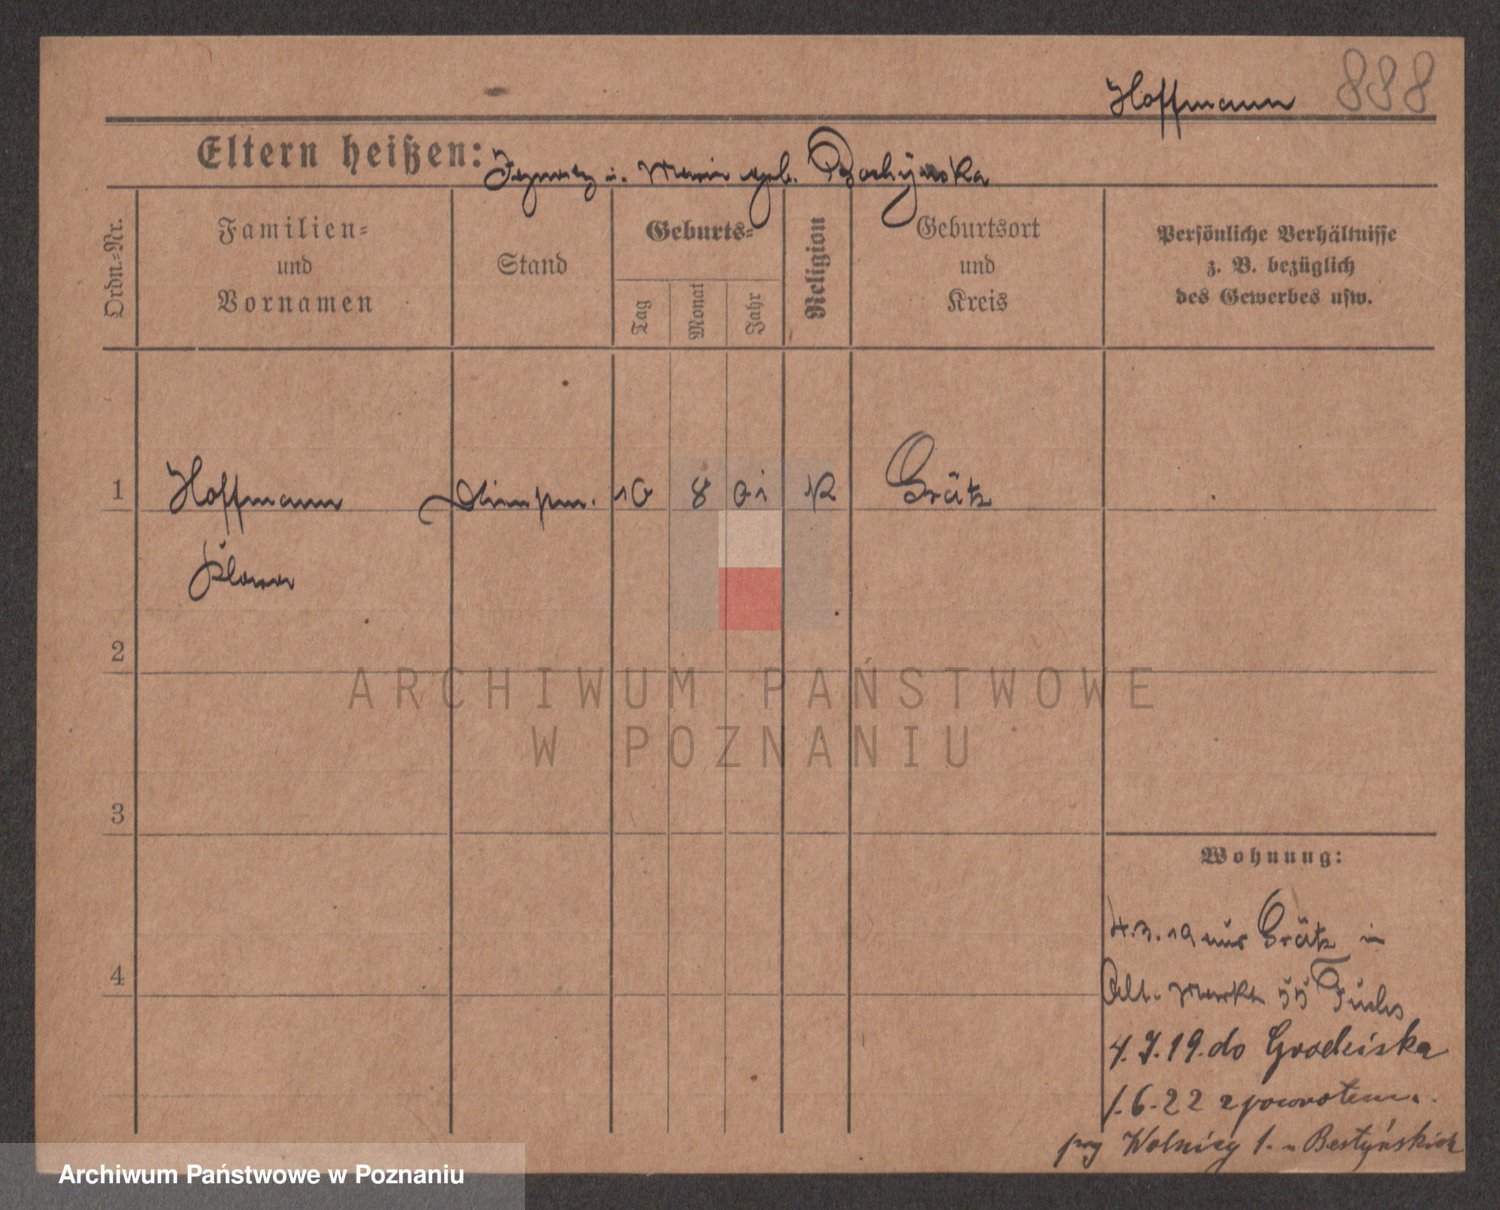 Hoffmann 888
Eltern heißen: Ignatz u. Maria geb.
Ordn.-Nr.
Familien-
und
Vornamen
Stand
Geburts-
Tag
Monat
Jahr
Religion
Geburtsort
und
Kreis
Persönliche Verhältnisse
z. B. bezüglich
des Gewerbes usw.
1 Hoffmann 10 8 01 K Grätz
2
3
4
Wohnung:
4.3.19 aus Grätz in
Alt. Markt 55 Fuchs
4.7.19. do Grodziska
1.6.22 z powrotem.
przy Wolnicy 1. u Bestyńskich
ARCHIWUM PAŃSTWOWE
W POZNANIU
Archiwum Państwowe w Poznaniu